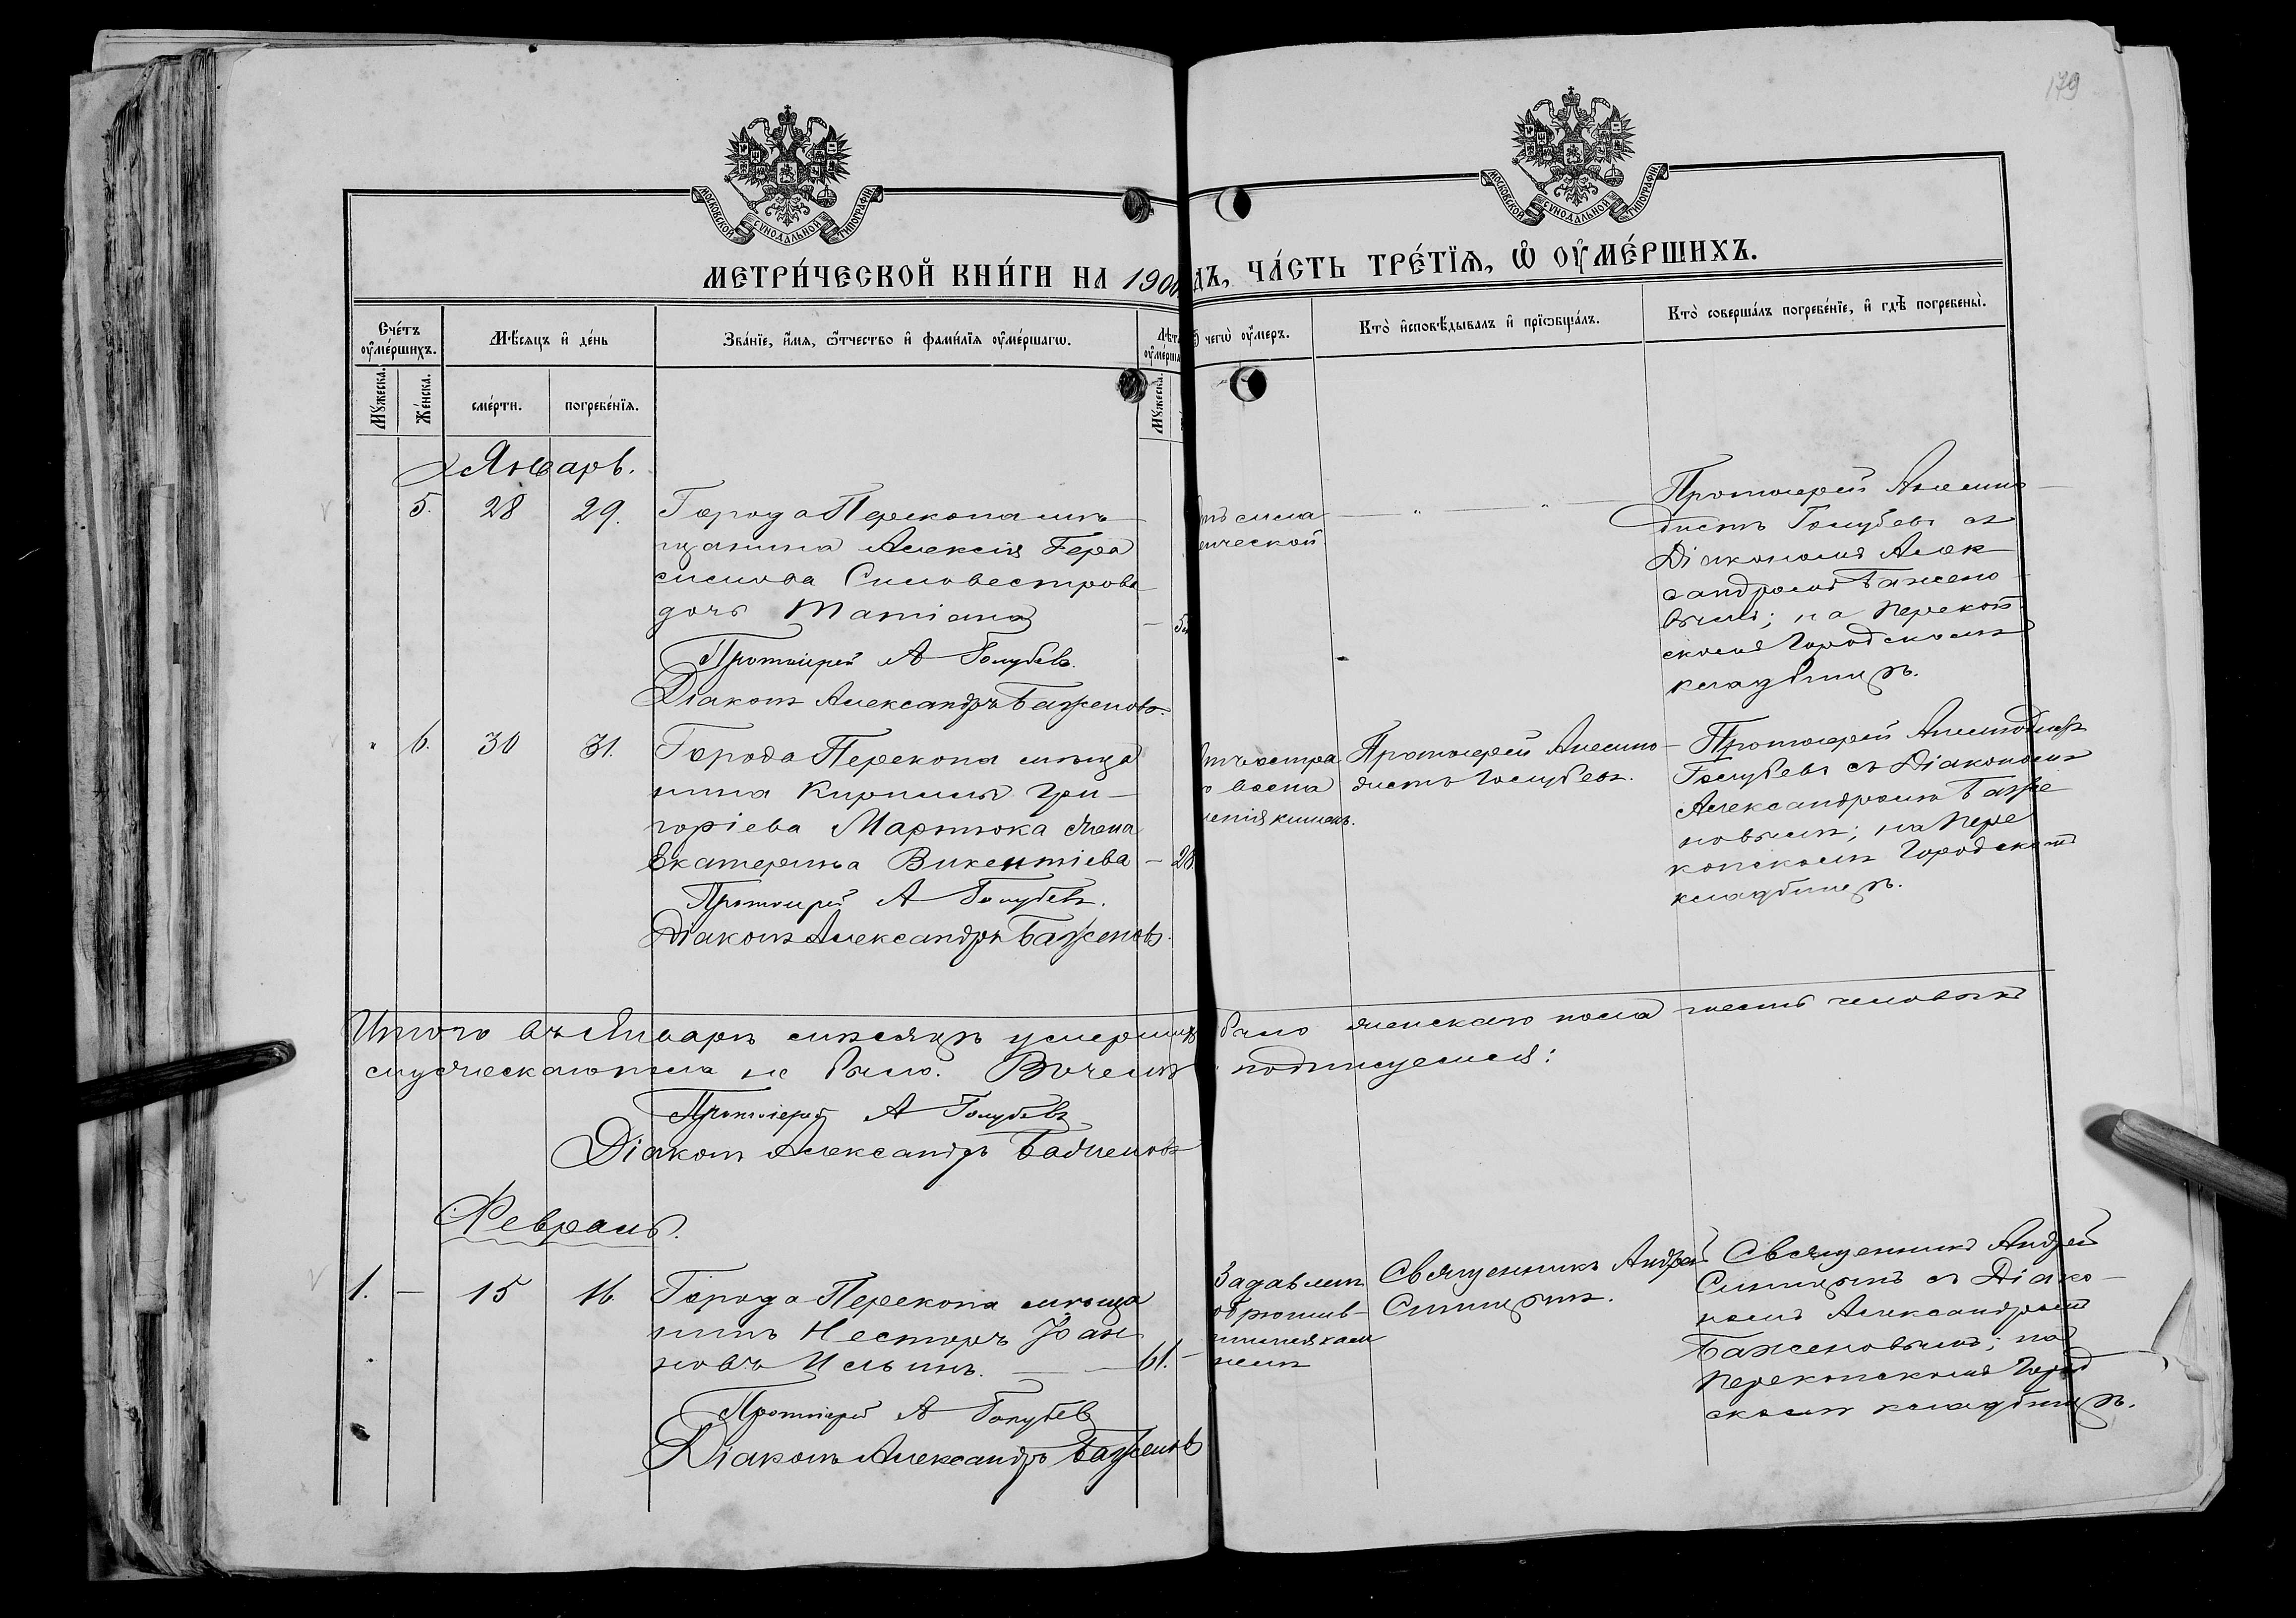 179
МОСКОВСКОЙ СѴНОДАЛЬНОЙ ТИПОГРАФІИ
МОСКОВСКОЙ СѴНОДАЛЬНОЙ ТИПОГРАФІИ
МЕТРИ́ЧЕСКОЙ КНИ́ГИ НА 1900
ДЪ, ЧА́СТЬ ТРЕ́ТЇѦ, Ѡ ОУ҆МЕ́РШИХЪ.
Сче́тъ оу҆ме́ршихъ.
Мѣ́сяцъ и҆ де́нь
Зва́нїе, и҆́мя, ѻ҆́тчество и҆ фами́лїя оу҆ме́ршагѡ.
Лѣт
оу҆ме́рша
чегѡ̀ оу҆́меръ.
Кто̀ и҆сповѣ́дывалъ и҆ прїѡбща́лъ.
Кто̀ соверша́лъ погребе́нїе, и҆ гдѣ̀ погребены̀.
Мꙋ́жеска.
Же́нска.
сме́рти.
погребе́нїя.
Мꙋ́жеска.
Январь.
5. 28 29.
Города Перекопа мѣ-
щанина Алексія Гера
симова Сильвестрова
дочь Татіана — 5
Протоіерей А Голубевъ.
Діаконъ Александръ Баженовъ.
отъ слаа
ической
Протоіерей Анемпо-
дистъ Голубевъ съ
Діакономъ Алек-
сандромъ Бажено-
вымъ; на Перекоп
скомъ Городскомъ
кладбищѣ.
" 6. 30 31.
Города Перекопа мѣща
нина Кирилла Гри-
горіева Мартюка жена
Екатерина Викентіева — 28.
Протоіерей А Голубевъ.
Діаконъ Александръ Баженовъ.
Отъ остра
го воспа
ленія кишекъ.
Протоіерей Анемпо-
дистъ Голубевъ.
Протоіерей Анемподистъ
Голубевъ съ Діакономъ
Александромъ Баже
новымъ; на Пере
копскомъ Городскомъ
кладбищѣ.
Итого въ Январѣ мѣсяцѣ умершихъ было женскаго пола шесть человѣкъ
мужескаго пола не было. Въ чемъ подписуемся:
Протоіерей А Голубевъ
Діаконъ Александръ Баженовъ
Февраль.
1. — 15 16.
Города Перекопа мѣща
нинъ Несторъ Іоан
новъ Ильинъ. — 61. —
Протоіерей А Голубевъ
Діаконъ Александръ Баженовъ
Задавленъ
обрушив-
шимся кам
немъ
Священникъ Андрей
Синицынъ.
Священникъ Андрей
Синицынъ съ Діако-
номъ Александромъ
Баженовымъ; на
Перекопскомъ Город
скомъ кладбищѣ.